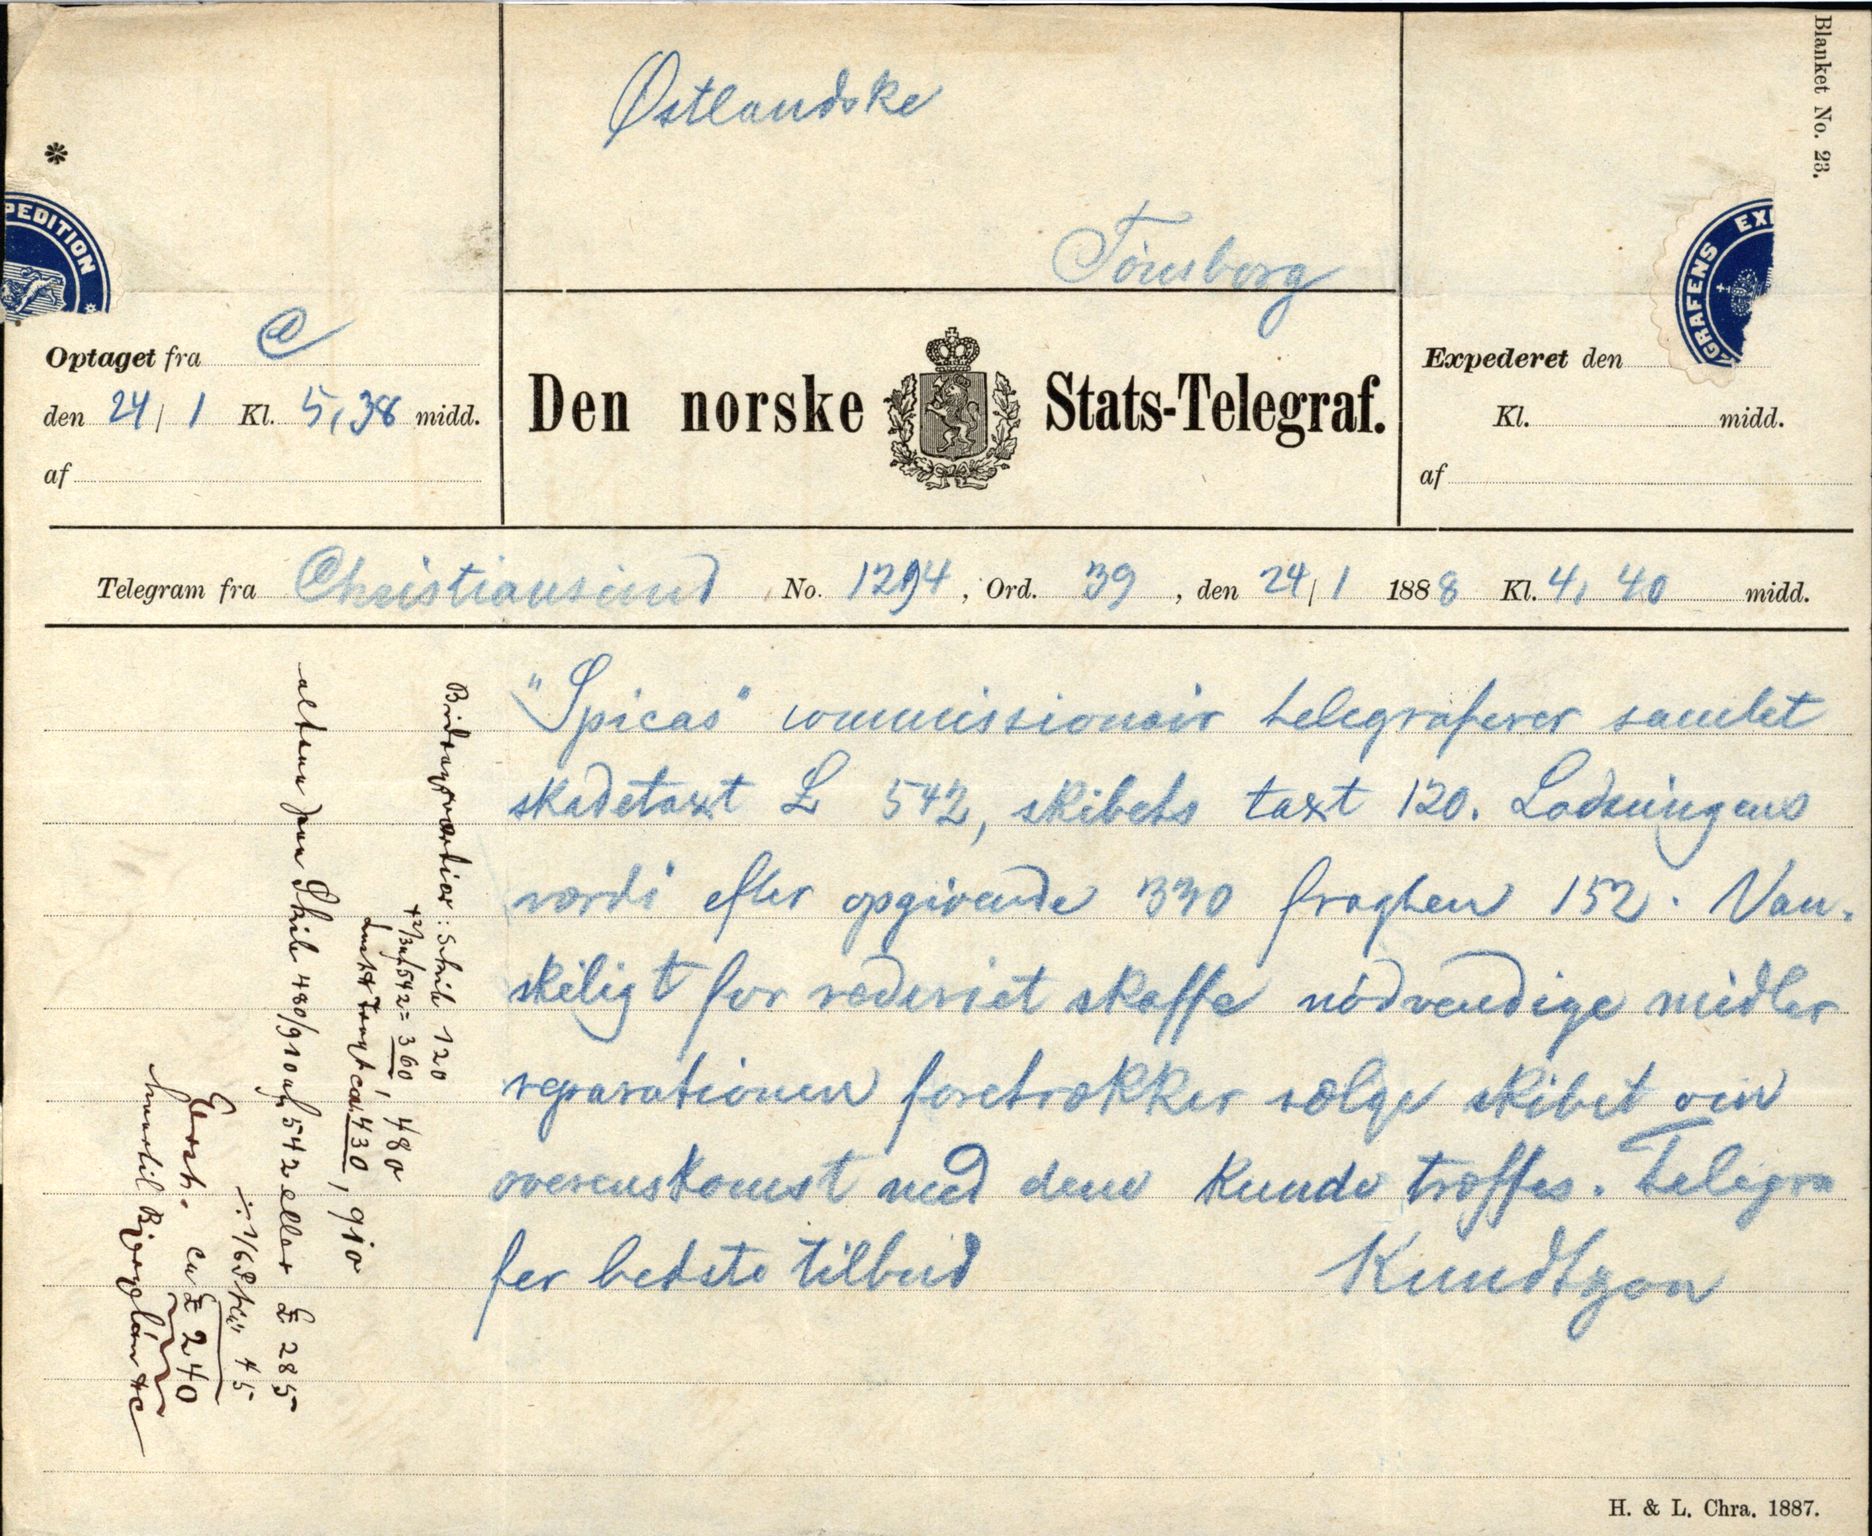 Blanket No. 23.
Østlandske
Tönsberg
*
PEDITION
GRAFENS EX
Optaget fra C
den 24/1 Kl. 5,38 midd.
af
Den norske Stats-Telegraf.
Expederet den
Kl. midd.
af
Telegram fra Christiansund No. 1294, Ord. 39, den 24/1 1888 Kl. 4,40 midd.
"Spicas" commissionair telegraferer samlet
skadetaxt £ 542, skibets taxt 120. Ladningens
værdi efter opgivende 330 fragten 152. Van-
skeligt for rederiet skaffe nödvendige midler
reparationen foretrækker sælge skibet om
overenskomst med dem kunde træffes. Telegra
fer bedste tilbud Kundtzon
Bidragsværdier: Skib 120
+2/3 af 542 = 360, 480
Fragt ca. 430, 910
altsaa paa Skib 480/910 af 542 eller £ 285
÷ 1/6 45
Erst. ca £ 240
H. & L. Chra. 1887.